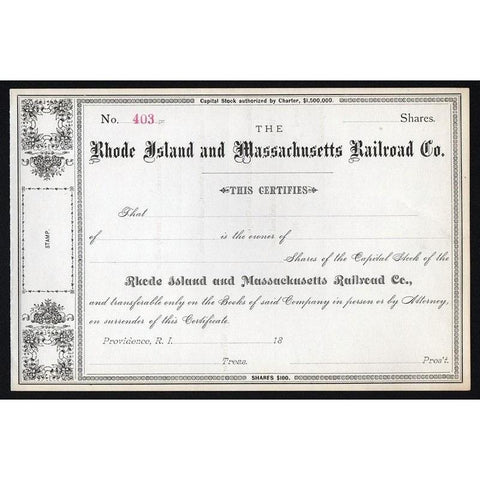 Capital Stock authorized by Charter, $1,500,000.
No. 403 Shares.
THE
Rhode Island and Massachusetts Railroad Co.
THIS CERTIFIES
That
of is the owner of
Shares of the Capital Stock of the
STAMP.
Rhode Island and Massachusetts Railroad Co.,
and transferable only on the Books of said Company in person or by Attorney,
on surrender of this Certificate.
Providence, R. I. 18
Treas. Pres't.
SHARES $100.